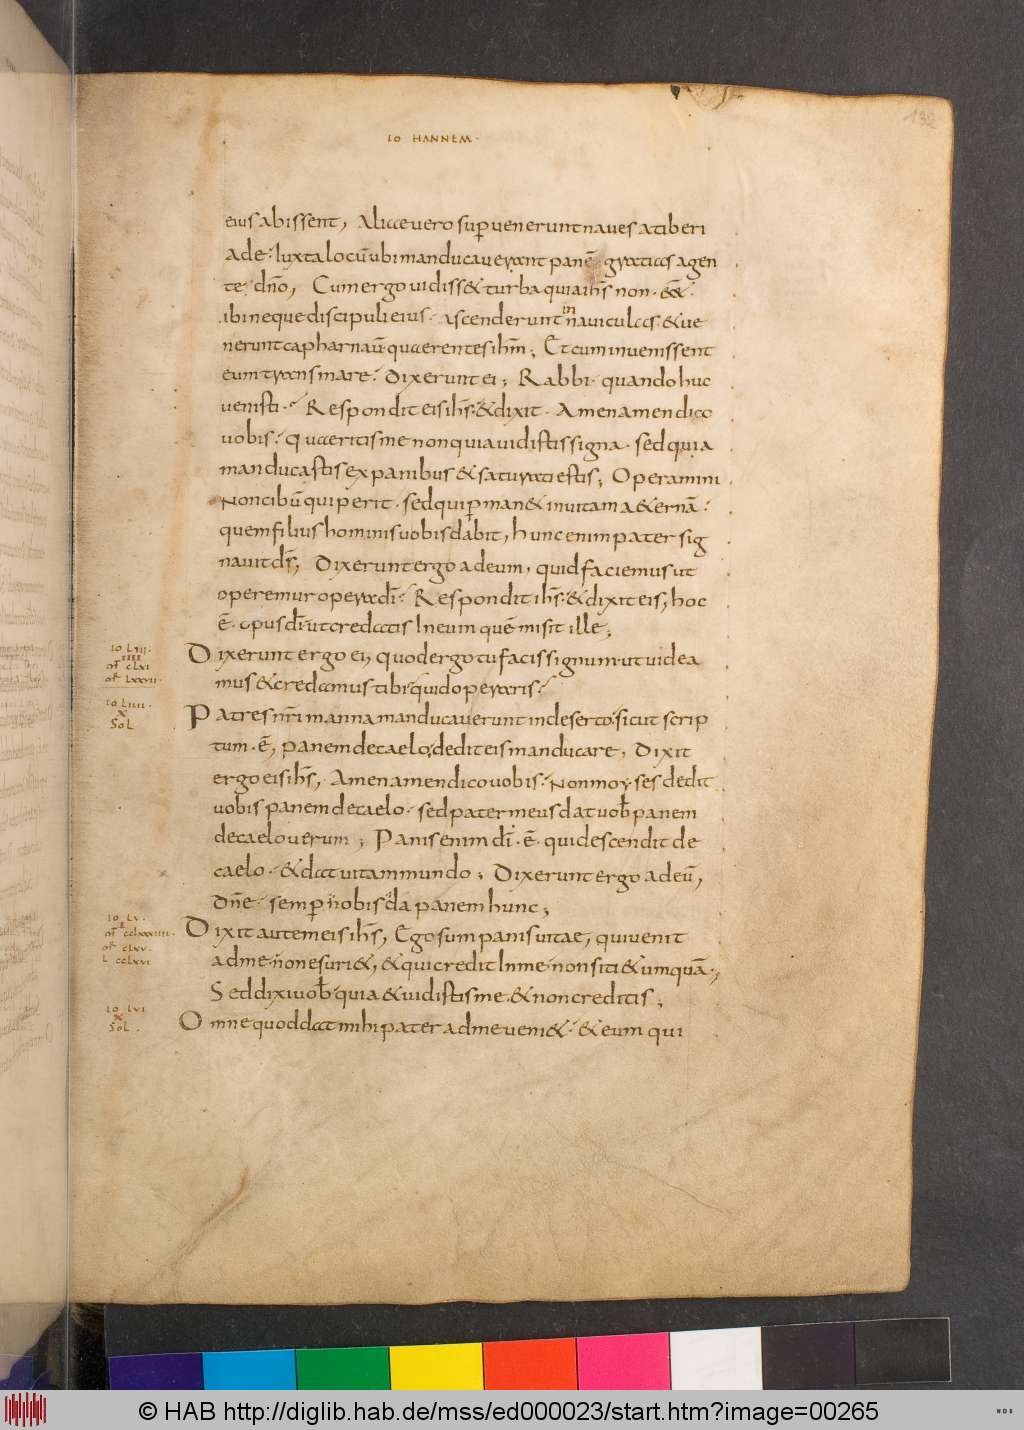 132
IO HANNEM·
eius abissent, Aliae vero sup̄venerunt naves a tiberi
ade· Iuxta locū ubi manducaverant panē gratias agen
te dn̄o, Cum ergo vidiss& turba quia ih̄s non · ēē&·
ibi neque discipuli eius· ascenderunt in naviculas· & ve
nerunt capharnaū· quaerentes ih̄m; Et cum invenissent
eum trans mare· dixerunt ei; Rabbi· quando huc
venisti·· Respondit eis ih̄s· & dixit· Amen amen dico
vobis· quaeritis me non quia vidistis signa· sed quia
manducastis ex panibus & saturati estis; Operamini
Non cibū qui perit· sed qui p̄man& in vitam a&ernā·
quem filius hominis vobis dabit, hunc enim pater sig
navit ds̄, Dixerunt ergo ad eum, quid faciemus ut
operemur opera dī· Respondit ih̄s· & dixit eis, hoc
ē· opus dī ut credatis In eum quē misit ille;
IO LIII·
IIII
mt̄ CLXI
mr̄ LXXVII·
Dixerunt ergo ei, quod ergo tu facis signum· ut videa
mus & credamus tibi· quid operaris·
IO LIIII·
X
SOL
Patres nr̄i manna manducaverunt in deserto· sicut scrip
tum· ē, panem de caelo· dedit eis manducare, Dixit
ergo eis ih̄s, Amen amen dico vobis· Non moyses dedit
vobis panem de caelo· sed pater meus dat vob̄ panem
de caelo verum; Panis enim dī· ē· qui descendit de
caelo· & dat vitam mundo; Dixerunt ergo ad eū,
dn̄e· semp̄ nobis da panem hunc;
IO LV·
I
mt̄ CCLXXXIIII·
mr̄ CLXV·
L CCLXVI
Dixit autem eis ih̄s, Ego sum panis vitae, qui venit
ad me· non esuri&, & qui credit In me· non siti& umquā·,
Sed dixi vob̄· quia & vidistis me· & non creditis;
IO LVI
X
SOL·
Omne quod dat mihi pater ad me veni&· & eum qui
© HAB http://diglib.hab.de/mss/ed000023/start.htm?image=00265
WDB